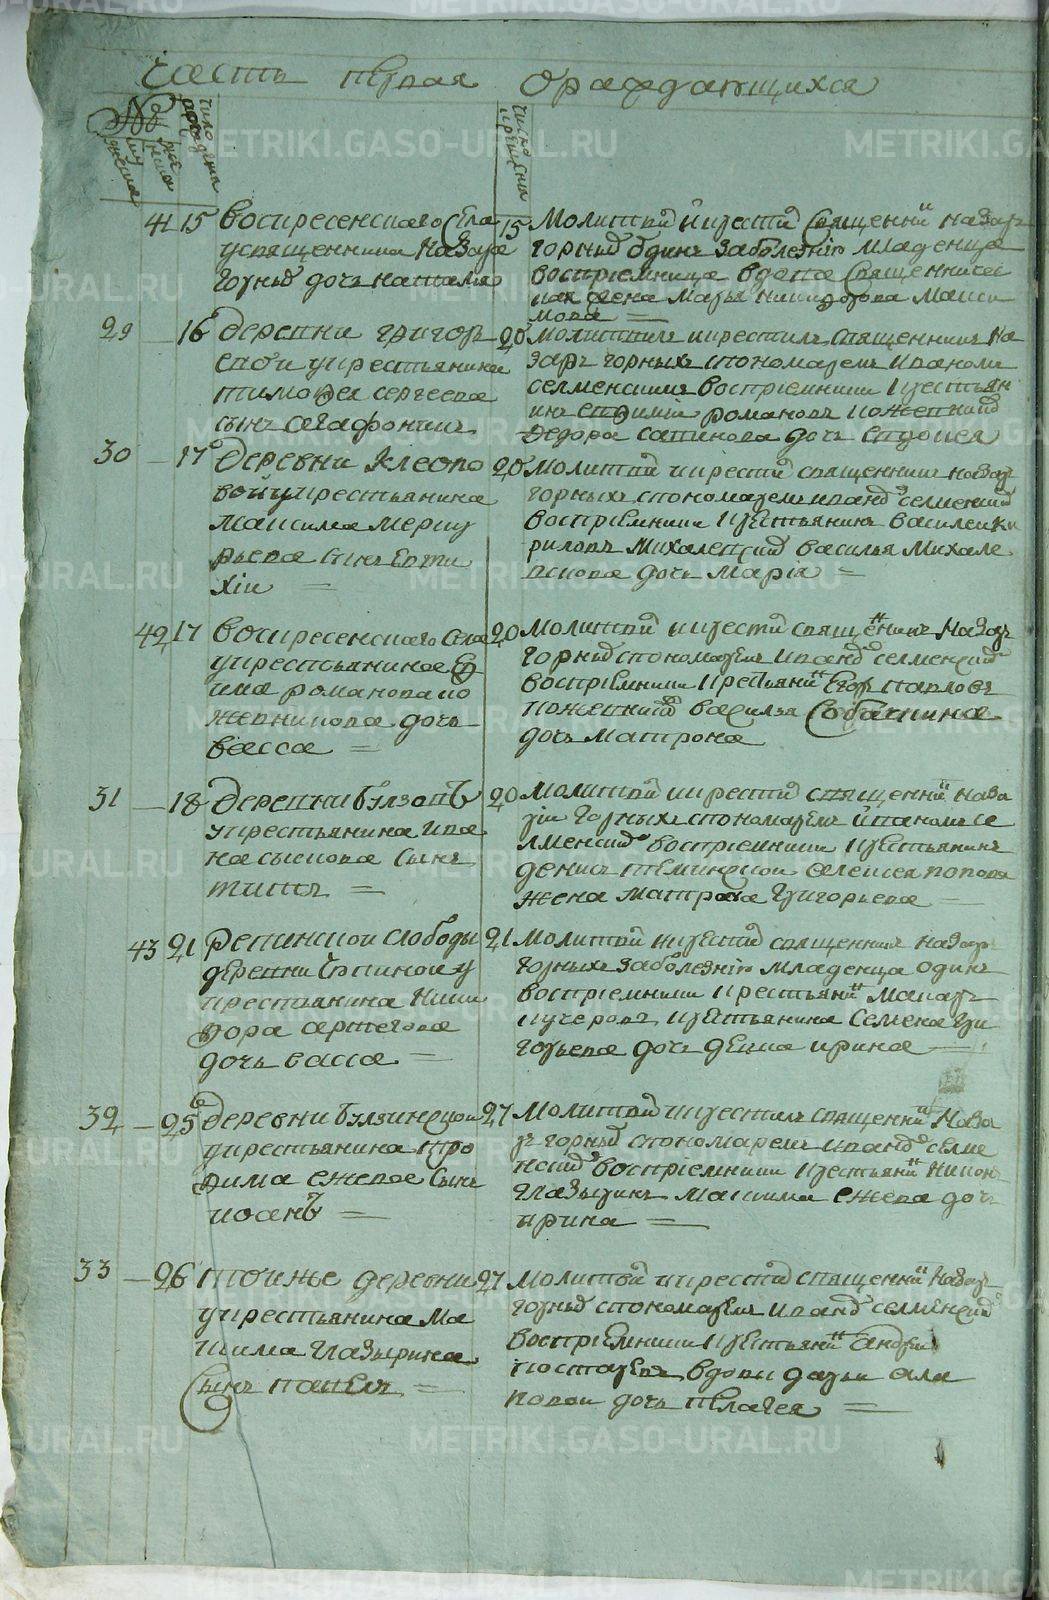 часть первая ораждающихся
число рождения
число крещения
41 15 воскресенского села
у священника Назара
Горных дочь наталья
15 Молитвой и крестил Священник назар
горных один за болезнію младенца
восприемница вдова Священничес
кая жена Марья никифорова Макси
мова
29 16 деревни григорь
евой у крестьянина
тимофея сергеева
сынъ агафоникъ
20 Молитвилъ и крестилъ священникъ на
заръ горныхъ с пономаремъ иваномъ
селменскимъ восприемники крестьян
инъ ефимъ романовъ кожевник
федора сапикова дочь
30 17 деревни клеопо
вой у крестьянина
максима меркурь
рьева сынъ евти
хіи
20 молитвой и крестил священникъ назар
горныхъ с пономаремъ иваном селменским
восприемники крестьянинъ василеи ки
риловъ Михалевской василья Михале
вскова дочь марія
42 17 воскресенского села
у крестьянина Еф
има романова ко
жевникова дочь
васса
20 молитвой и крестил священникъ назаръ
горных с пономаремъ иваном селменским
восприемники крестьянин Егоръ павловъ
кожевник василья Собакина
дочь матрона
31 18 деревни булзовъ
у крестьянина ива
на сысоева сынъ
титъ
20 молитвой и крестил священник наза
ріи горныхъ с пономаремъ иваномъ се
лменским восприемники крестьянинъ
денисъ алексея попова
жена матрона григорьева
43 21 репинскои слободы
деревни у
крестьянина ники
фора артегова
дочь васса
21 молитвой и крестил священникъ назаръ
горныхъ за болезнію младенца одинъ
восприемники крестьянин макаръ
кучеровъ крестьянина семена гри
горьева дочь девка ирина
32 25 деревни булзинской
у крестьянина тро
фима ежева сынъ
иоаннъ
27 молитвой и крестилъ священник наза
ръ горных с пономаремъ иваном селме
нским восприемники крестьянин никонъ
глазыринъ максима ежева дочь
ирина
33 26 тоижъ деревни
у крестьянина ма
ксима глазырина
сынъ павелъ
27 молитвой и крестил священник назаръ
горных с пономаремъ иваном селменским
восприемники крестьянин андреи
вдовы дарьи
повои дочь пелагея
METRIKI.GASO-URAL.RU